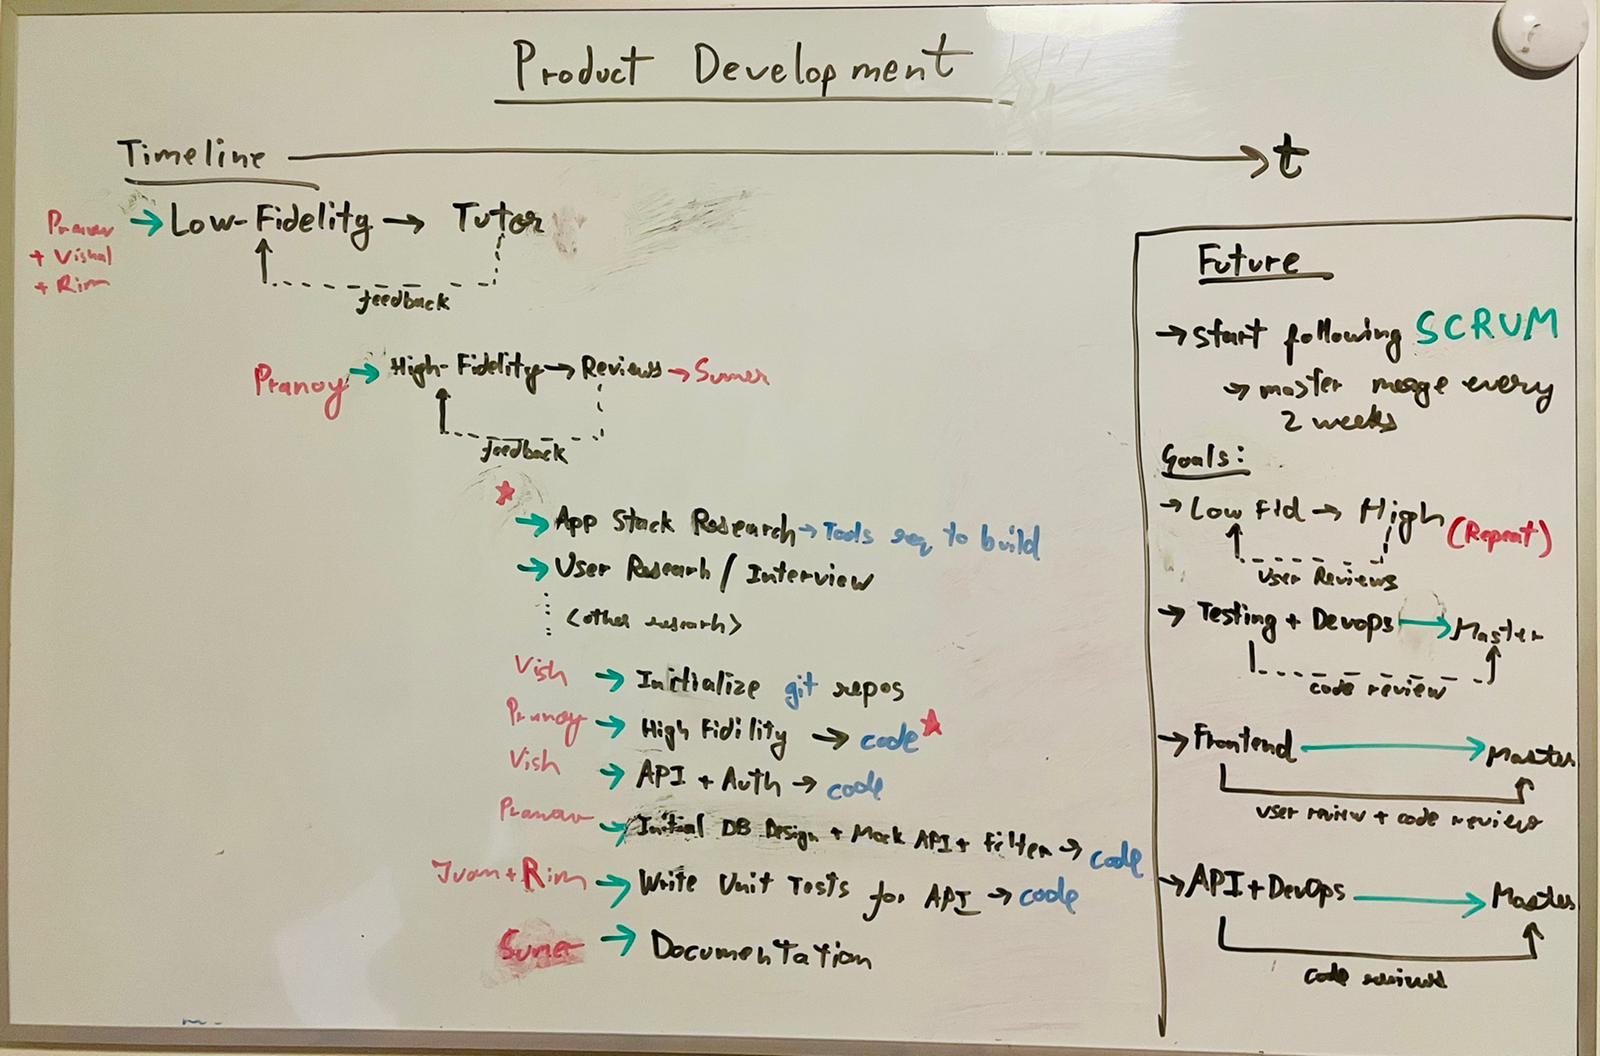 Product Development
Timeline → t
Pranav → Low-Fidelity → Tutor
+ Vishal
+ Rim
feedback
Pranoy → High-Fidelity → Reviews → Sumer
feedback
→ App Stack Research → Tools req to build
→ User Researh / Interview
<other research>
Vish → Initialize git repos
Pranoy → High Fidility → code
Vish → API + Auth → code
Pranav → Initial DB Design + Mock API + Filter → code
Juan + Rim → Write Unit Tests for API → code
Sumer → Documentation
Future
→ start following SCRUM
→ master merge every
2 weeks
Goals:
→ Low Fid → High (Repeat)
User Reviews
→ Testing + Devops → Master
code review
→ Frontend → Master
user review + code reviews
→ API + DevOps → Master
code reviews